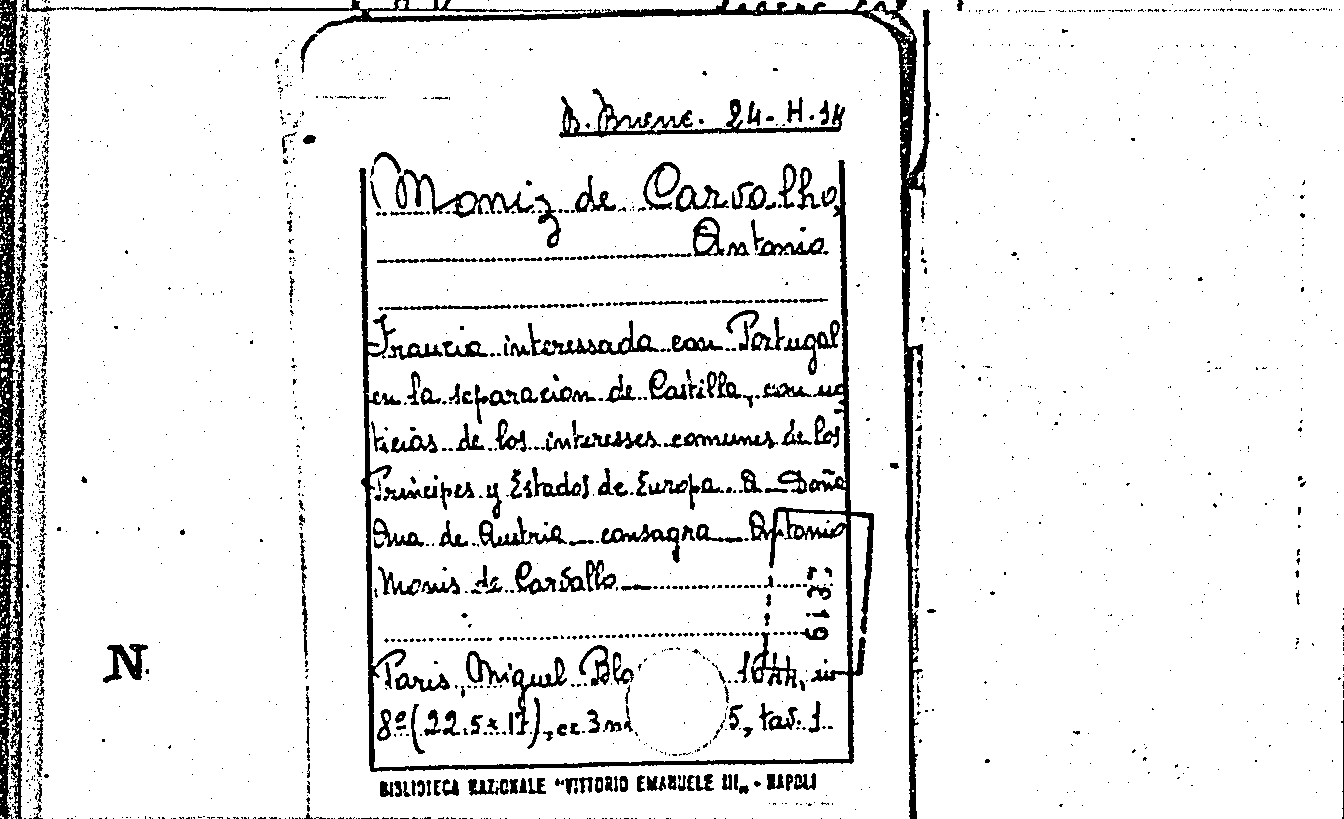 B. Branc. 24-H-34
Moniz de Carvalho,
Antonio
Francia interessada con Portugal
en la separacion de Castilla, con no
ticias de los interesses comunes de los
Principes y Estados de Europa. A Doña
Ana de Austria consagra Antonio
Monis de Carvallo
Paris, Miguel Blo 1644, in
8º (22.5x17), cc. 3 5, tav. 1.
BIBLIOTECA NAZIONALE "VITTORIO EMANUELE III„ - NAPOLI
N